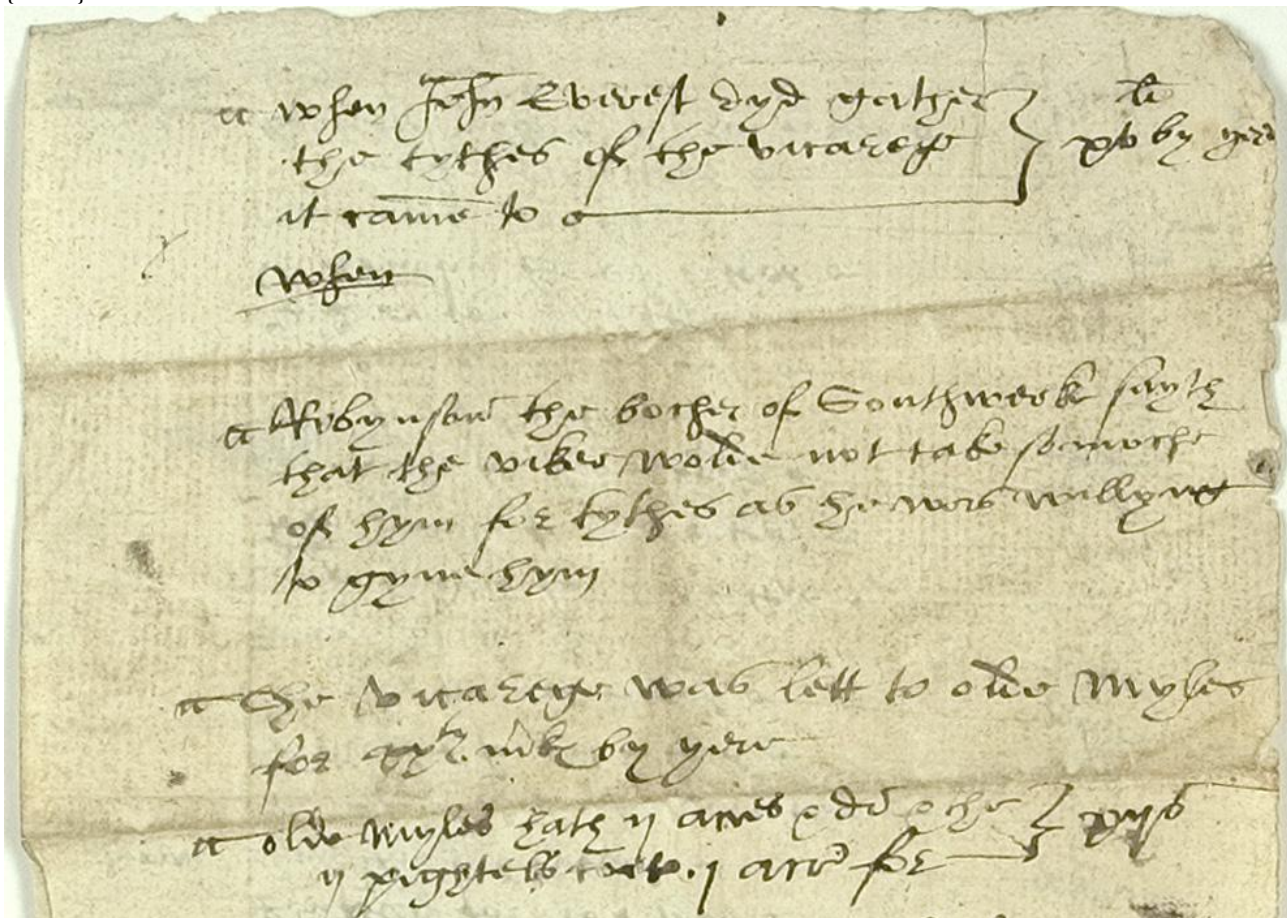 when John Everest dyd gather
the tythes of the vicarege
it came to
li
xv by yere
when
Robynson the bocher of Southwerk sayth
that the viker wolde not take somoche
of hym for tythes as he was wyllyng
to gyve hym
The vicarege was lett to olde Myles
for by yere
olde Myles hath ij acres di
ij pightels j acre for